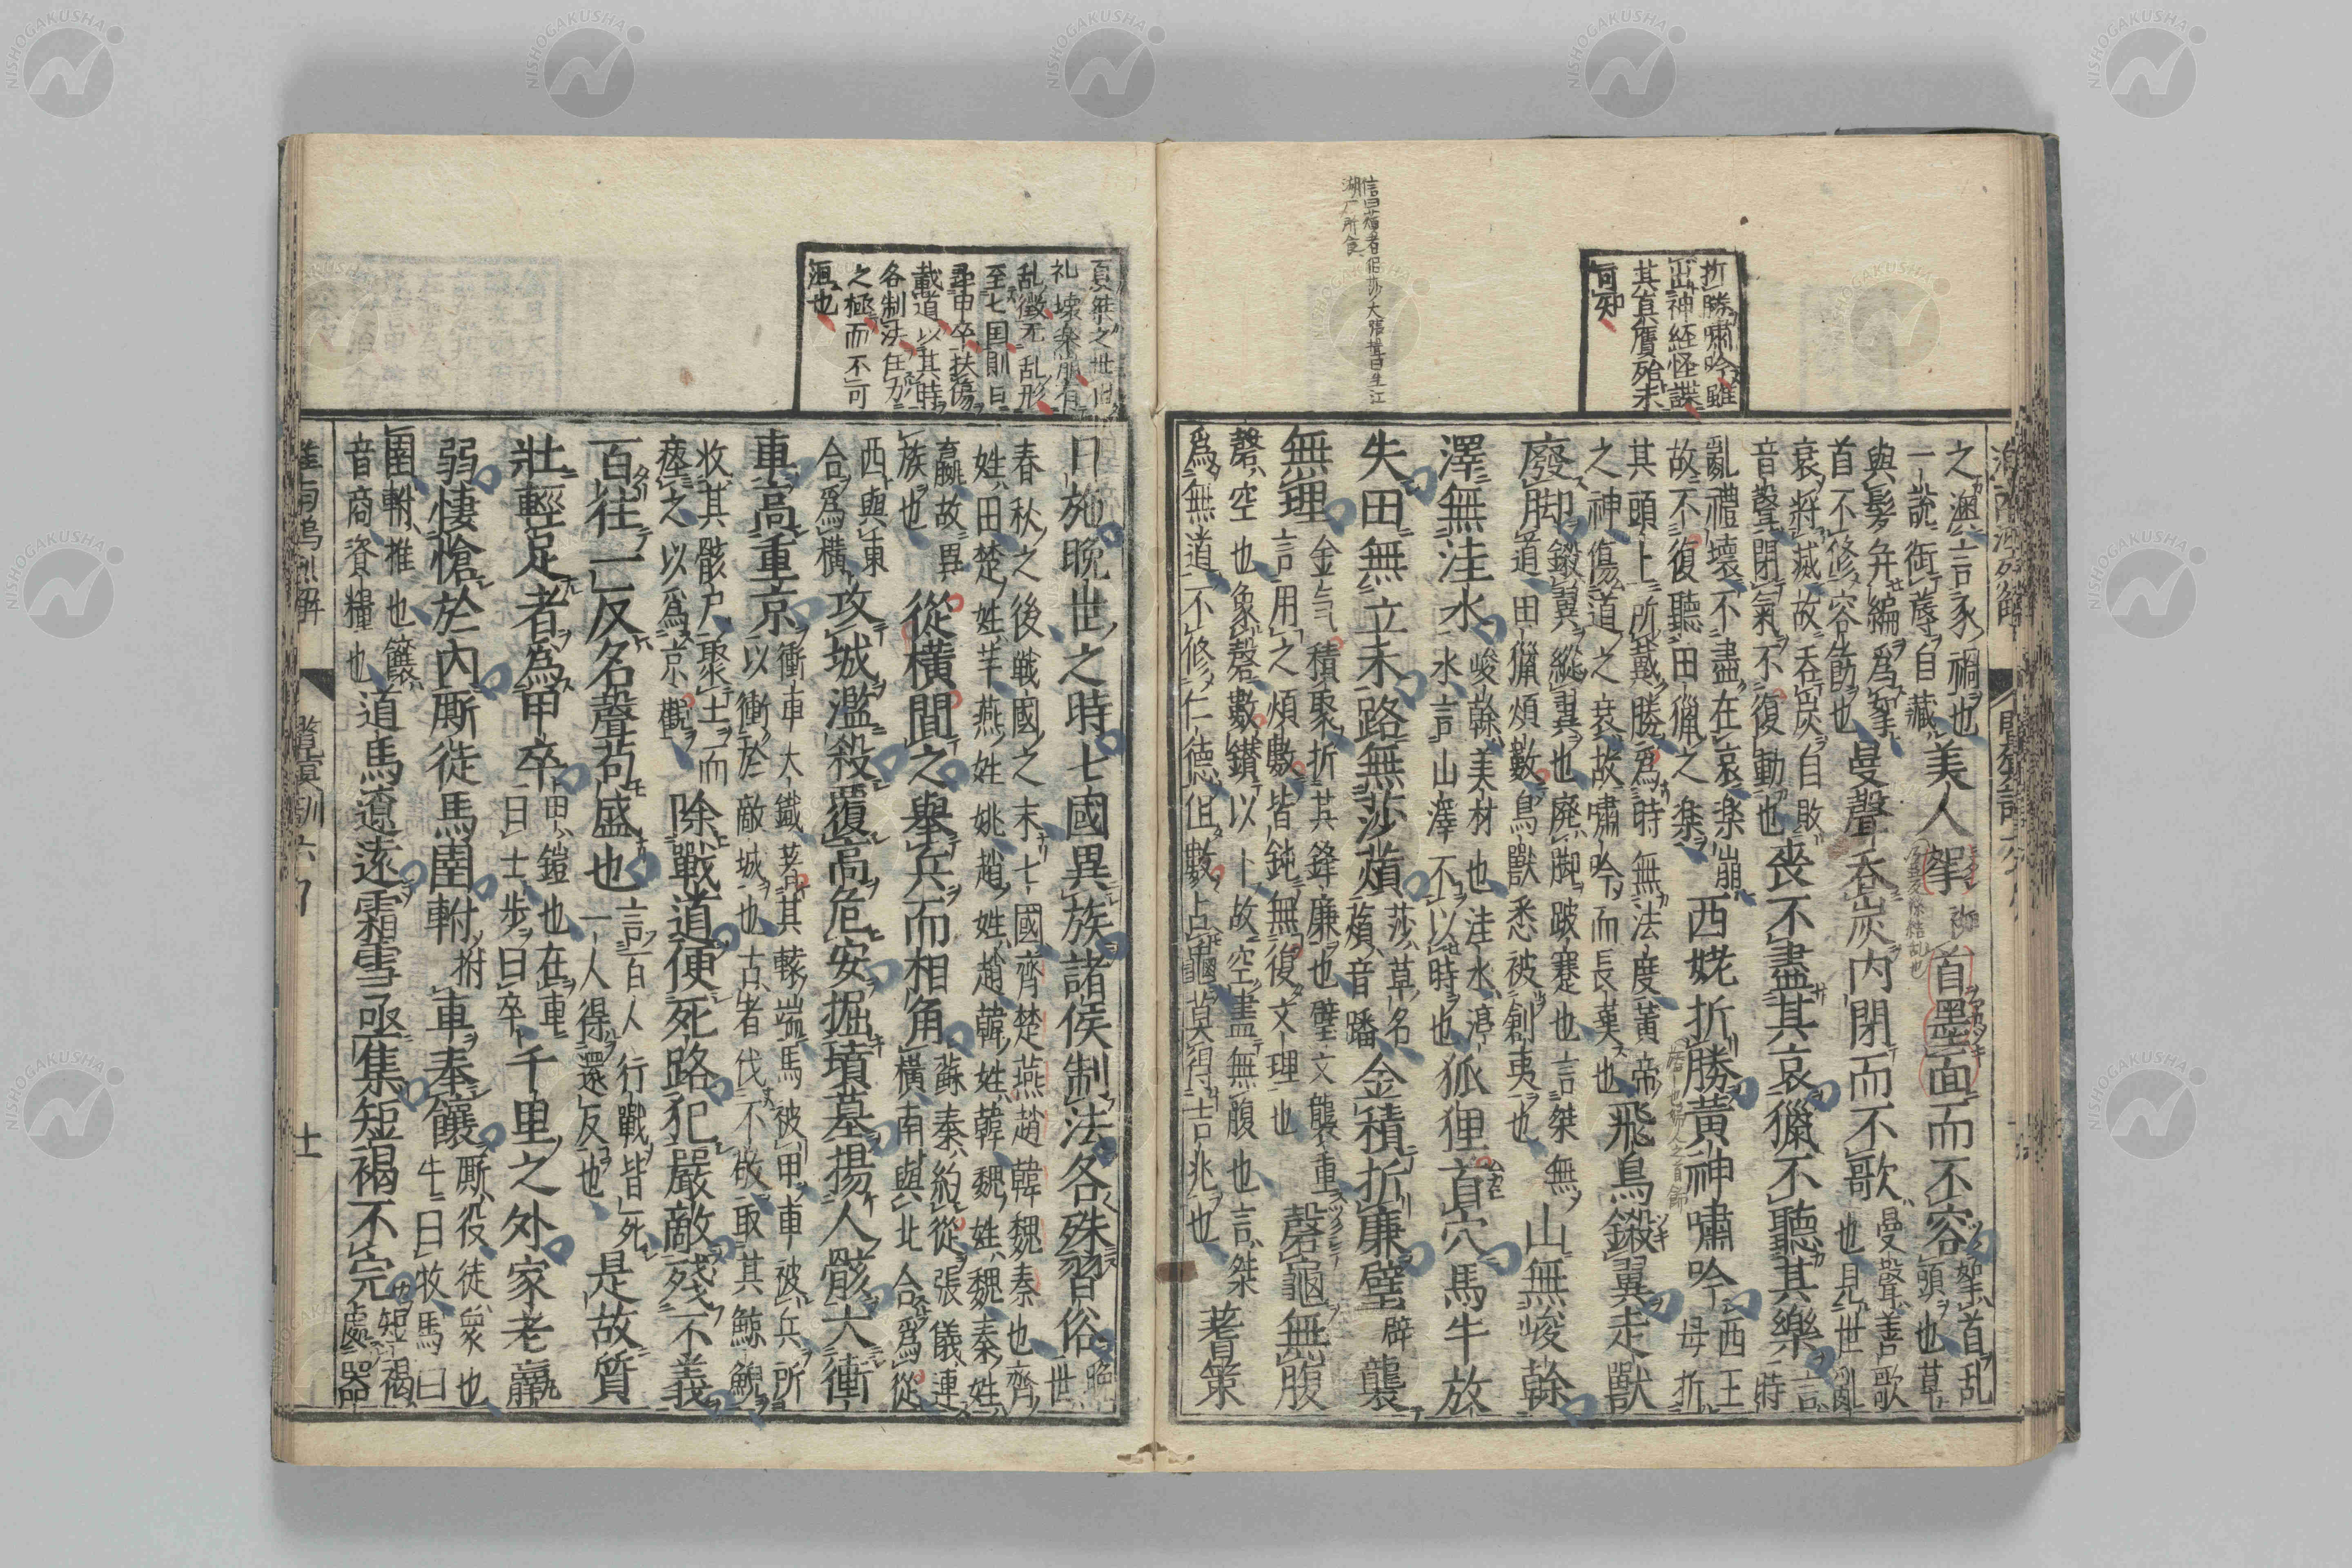 折勝嘯吟雖
出神経怪諜
其真贋殆未
可知
之澳言豕禍也
一說銜蓐自藏
美人挐首墨面而不容
挐首乱
頭也草
與髮并編爲挐
首不修容飾也
曼聲吞炭内閉而不歌
曼聲善歌
也見世亂
衰將滅故吞炭自敗
音聲閉氣不復動也
喪不盡其哀獵不聽其樂
言
時
亂禮壞不盡在哀楽崩
故不復聽田獵之楽
西姥折勝黃神嘯吟
西王
母折
其頭上所戴勝爲時無法度黃帝
之神傷道之衰故嘯吟而長嘆也
飛鳥鎩翼走獸
廢脚
鎩翼縱翼也廢脚跛蹇也言桀無
道田獵煩數鳥獸悉被創夷也
山無峻榦
澤無洼水
峻榦美材也洼水渟
水言山澤不以時也
狐狸首穴馬牛放
失田無立禾路無莎薠
莎草名
薠音蹯
金積折廉璧辟襲
無理
金气積聚折其鋒廉也璧文襲重
言用之煩數皆鈍無復文理也
磬龜無腹
磬空也象磬數鑽以卜故空盡無腹也言桀
爲無道不修仁德但數占龜莫得吉兆也
蓍策
夏桀之世旧
礼壊楽崩有
乱徴无乱形
至七国則日
尋甲卒扶傷
載道以其時
各制法任力
之極而不可
洄也
日施晚世之時七國異族諸侯制法各殊習俗
晚
世
春秋之後戰國之末七國齊楚燕趙韓魏秦也齊
姓田楚姓羋燕姓姚趙姓趙韓姓韓魏姓魏秦姓
嬴故異
族也
從橫間之舉兵而相角
蘇秦約從張儀連
橫南與北合爲從
西與東
合爲橫
攻城濫殺覆高危安掘墳墓揚人骸大衝
車高重京
衝車大鐵著其轅端馬被甲車被兵所
以衝於敵城也古者伐不敬取其鯨鯢
收其骸尸聚土而
瘞之以爲京觀
除戰道便死路犯嚴敵殘不義
百往一反名聲苟盛也
言百人行戰皆死
一人得還反也
是故質
壯輕足者爲甲卒
甲鎧也在車
曰士步曰卒
千里之外家老羸
弱悽愴於內厮徒馬圉軵拊車奉饟
厮役徒衆也
牛曰牧馬曰
圉軵推也饟
音商資糧也
道馬遼遠霜雪亟集短褐不完
短褐
處器
覽冥訓六